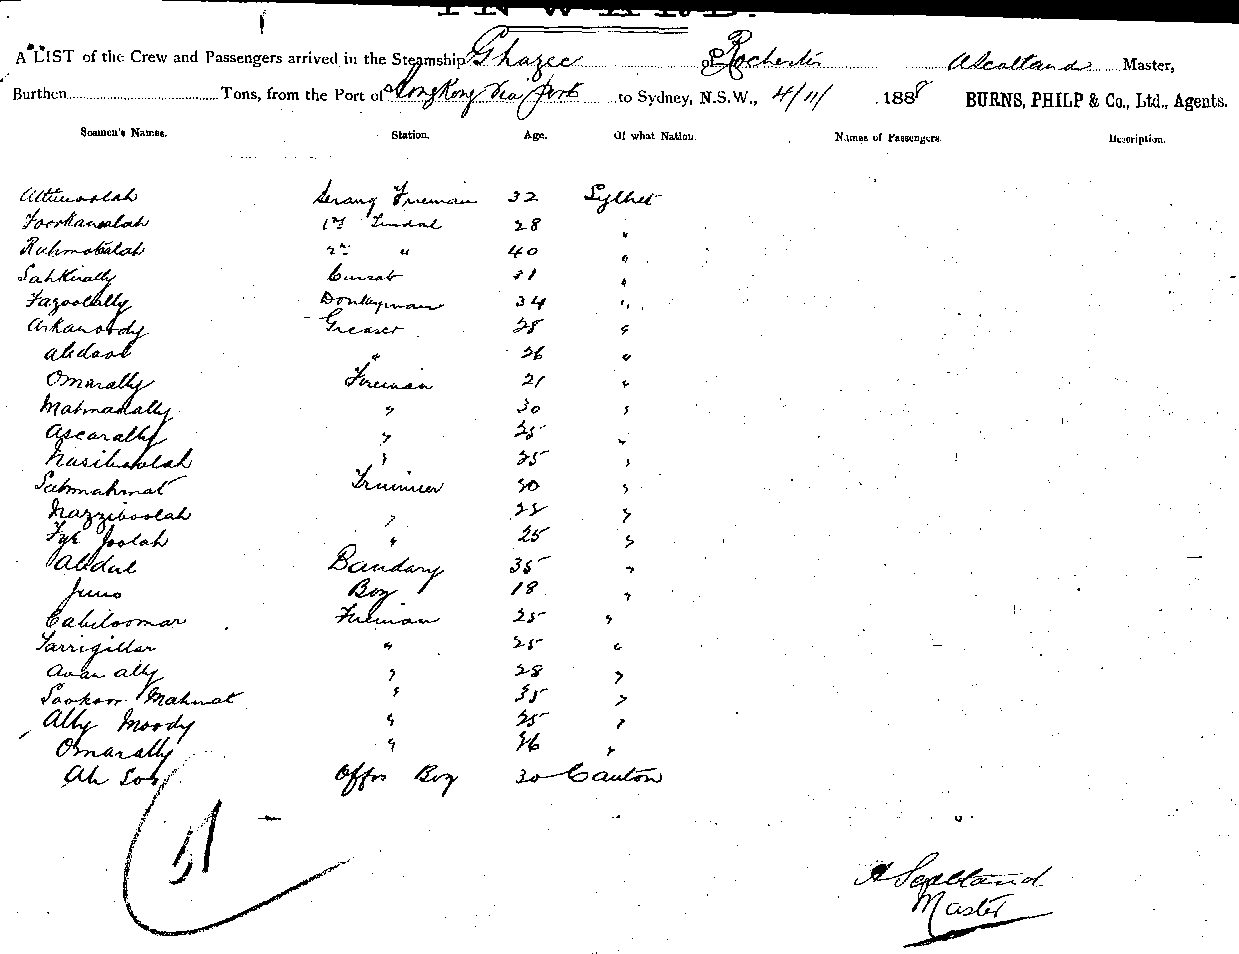 INWARD.
A LIST of the Crew and Passengers arrived in the Steamship Ghazee of Rochester A Scotland Master,
Burthen Tons, from the Port of HongKong Via port to Sydney, N.S.W., 4/11/ 1888 BURNS, PHILP & Co., Ltd., Agents.
Seamen's Names. Station. Age. Of what Nation. Names of Passengers. Description.
Serang Fireman 32 Sylhet
Toorkanoolah 1st Tindal 28 "
Rahmotalah 2nd " 40 "
Cussab 31 "
Fazoolally Donkeyman 34 "
Greaser 28 "
Abdool " 26 "
Omarally Fireman 21 "
Mahmadally " 30 "
Ascarally " 25 "
Nasiboolah " 25 "
Trimmer 30 "
Nazziboolah " "
Fyz " 25 "
Abdul Bandary 35 "
Juno Boy 18 "
Cabiloomar Fireman 25 "
" 25 "
Avan ally " 28 "
Sookoor Mahmat " 35 "
Ally Moody " 25 "
Omarally " 36 "
Ah Soo Offrs Boy 30 Canton
51
A Scotland
Master